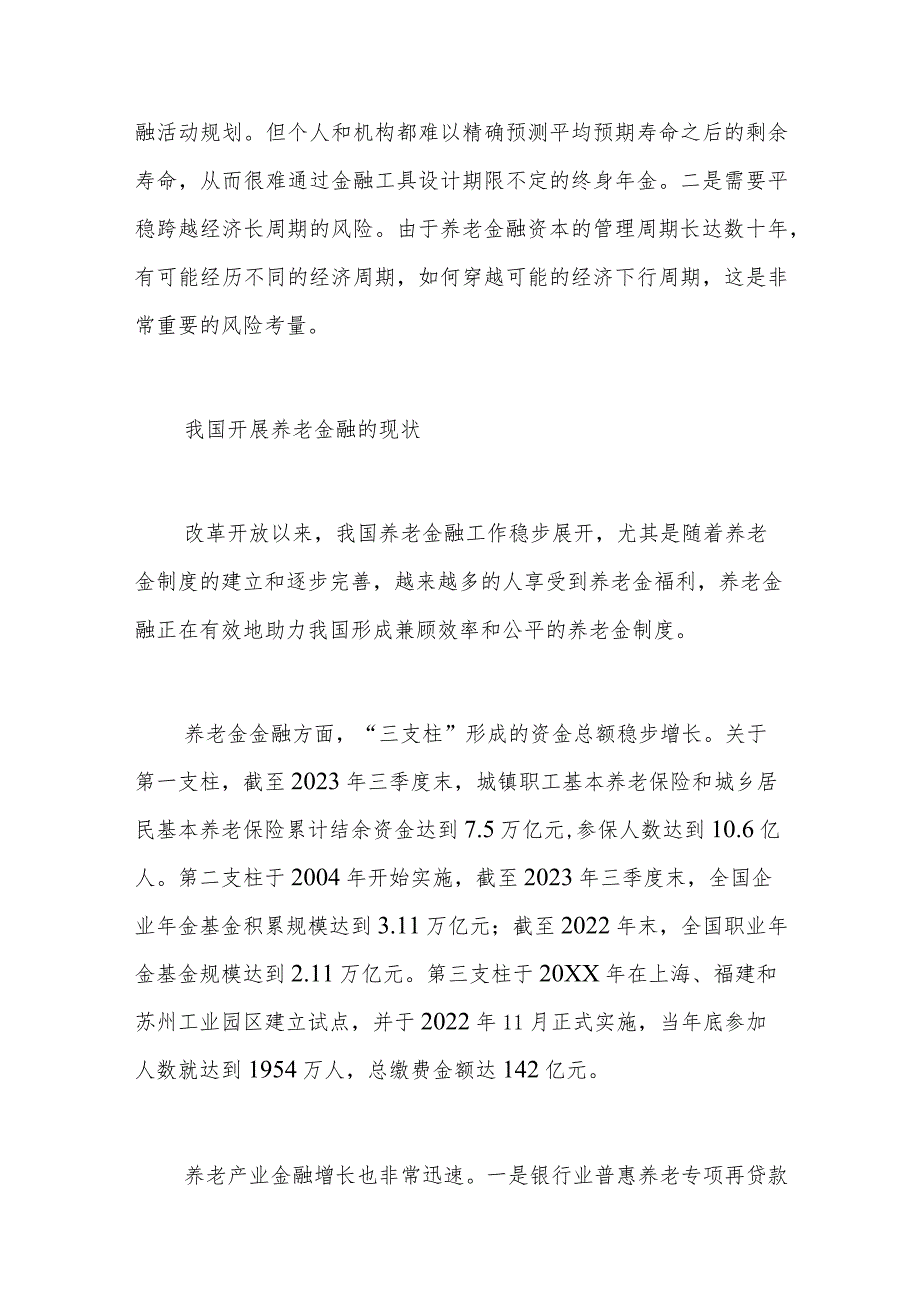 融活动规划。但个人和机构都难以精确预测平均预期寿命之后的剩余
寿命，从而很难通过金融工具设计期限不定的终身年金。二是需要平
稳跨越经济长周期的风险。由于养老金融资本的管理周期长达数十年，
有可能经历不同的经济周期，如何穿越可能的经济下行周期，这是非
常重要的风险考量。
我国开展养老金融的现状
改革开放以来，我国养老金融工作稳步展开，尤其是随着养老
金制度的建立和逐步完善，越来越多的人享受到养老金福利，养老金
融正在有效地助力我国形成兼顾效率和公平的养老金制度。
养老金金融方面，“三支柱”形成的资金总额稳步增长。关于
第一支柱，截至2023年三季度末，城镇职工基本养老保险和城乡居
民基本养老保险累计结余资金达到7.5万亿元,参保人数达到10.6亿
人。第二支柱于2004年开始实施，截至2023年三季度末，全国企
业年金基金积累规模达到3.11万亿元；截至2022年末，全国职业年
金基金规模达到2.11万亿元。第三支柱于20XX年在上海、福建和
苏州工业园区建立试点，并于2022年11月正式实施，当年底参加
人数就达到1954万人，总缴费金额达142亿元。
养老产业金融增长也非常迅速。一是银行业普惠养老专项再贷款